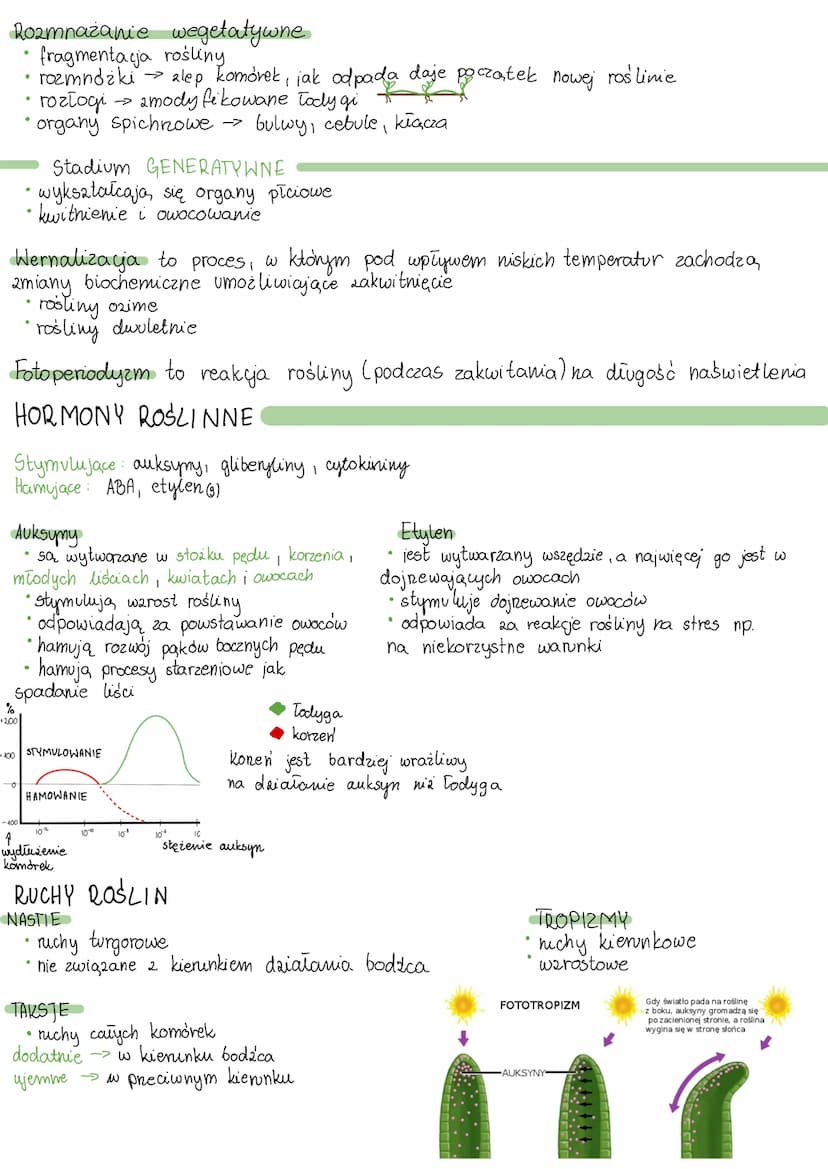 Rozmnażanie wegetatywne
• fragmentacja rośliny
• rozmnóżki → zlep komórek, jak odpada daje początek nowej roślinie
• rozłogi → zmodyfikowane łodygi
• organy spichrzowe → bulwy, cebule, kłącza
Stadium GENERATYWNE
• wykształcają się organy płciowe
• kwitnienie i owocowanie
Wernalizacja to proces, w którym pod wpływem niskich temperatur zachodzą
zmiany biochemiczne umożliwiające zakwitnięcie
• rośliny ozime
• rośliny dwuletnie
Fotoperiodyzm to reakcja rośliny (podczas zakwitania) na długość naświetlenia
HORMONY ROŚLINNE
Stymulujące: auksyny, gliberyliny, cytokininy
Hamujące: ABA, etylen(g)
Auksyny
• są wytwarzane w stożku pędu, korzenia,
młodych liściach, kwiatach i owocach
• stymulują wzrost rośliny
• odpowiadają za powstawanie owoców
• hamują rozwój pąków bocznych pędu
• hamują procesy starzeniowe jak
spadanie liści
Etylen
• jest wytwarzany wszędzie, a najwięcej go jest w
dojrzewających owocach
• stymuluje dojrzewanie owoców
• odpowiada za reakcje rośliny na stres np.
na niekorzystne warunki
%
+200
+100
STYMULOWANIE
0
HAMOWANIE
-100
wydłużenie
komórek
stężenie auksyn
łodyga
korzeń
Korzeń jest bardziej wrażliwy
na działanie auksyn niż łodyga
RUCHY ROŚLIN
NASTIE
• ruchy turgorowe
• nie związane z kierunkiem działania bodźca
TROPIZMY
• ruchy kierunkowe
• wzrostowe
TAKSJE
• ruchy całych komórek
dodatnie → w kierunku bodźca
ujemne → w przeciwnym kierunku
FOTOTROPIZM
Gdy światło pada na roślinę
z boku, auksyny gromadzą się
po zacienionej stronie, a roślina
wygina się w stronę słońca
AUKSYNY